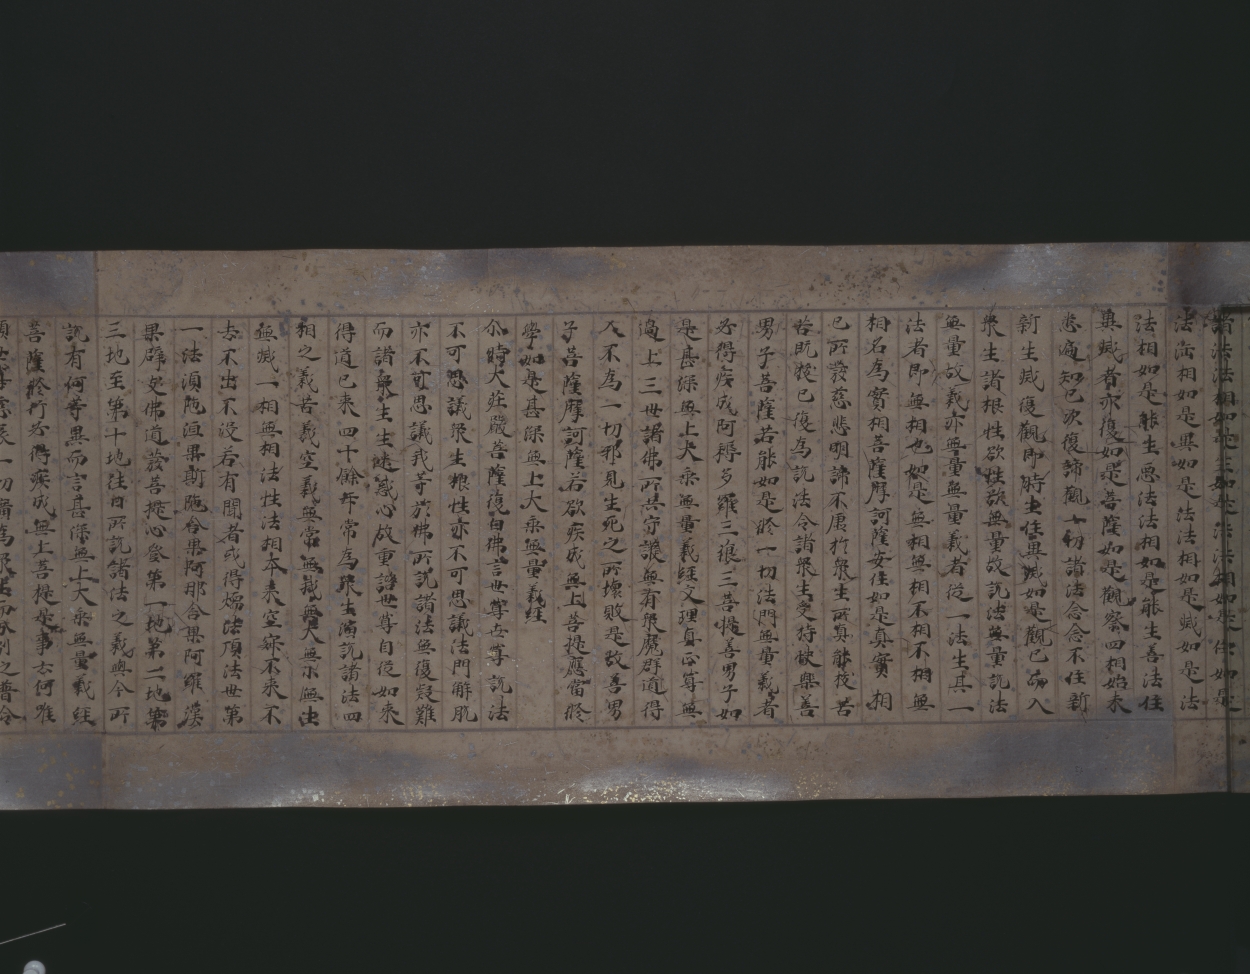 諸法法相如是生如是法法相如是住如是
法法相如是異如是法法相如是滅如是法
法相如是能生惡法法相如是能生善法住
異滅者亦復如是菩薩如是觀察四相始末
悉遍知已次復諦觀一切諸法念念不住新
新生滅復觀即時生住異滅如是觀已而入
衆生諸根性欲性欲無量故說法無量說法
無量故義亦無量無量義者從一法生其一
法者即無相也如是無相無相不相不相無
相名為實相菩薩摩訶薩安住如是真實相
已所發慈悲明諦不虛於衆生所真能拔苦
苦既拔已復為說法令諸衆生受持快樂善
男子菩薩若能如是於一切法門無量義者
必得疾成阿耨多羅三藐三菩提善男子如
是甚深無上大乘無量義經文理真正尊無
過上三世諸佛所共守護無有衆魔群道得
入不為一切邪見生死之所壞敗是故善男
子菩薩摩訶薩若欲疾成無上菩提應當修
學如是甚深無上大乘無量義經
尒時大莊嚴菩薩復白佛言世尊世尊說法
不可思議衆生根性亦不可思議法門解脫
亦不可思議我等於佛所說諸法無復疑難
而諸衆生生迷惑心故重諮世尊自從如來
得道已来四十餘年常為衆生演說諸法四
相之義苦義空義無常無我無大無小無生
無滅一相無相法性法相本来空寂不来不
去不出不沒若有聞者或得煗法頂法世第
一法湏陁洹果斯陁含果阿那含果阿羅漢
果辟支佛道發菩提心登第一地第二地第
三地至第十地往日所說諸法之義與今所
說有何等異而言甚深無上大乘無量義經
菩薩修行必得疾成無上菩提是事云何唯